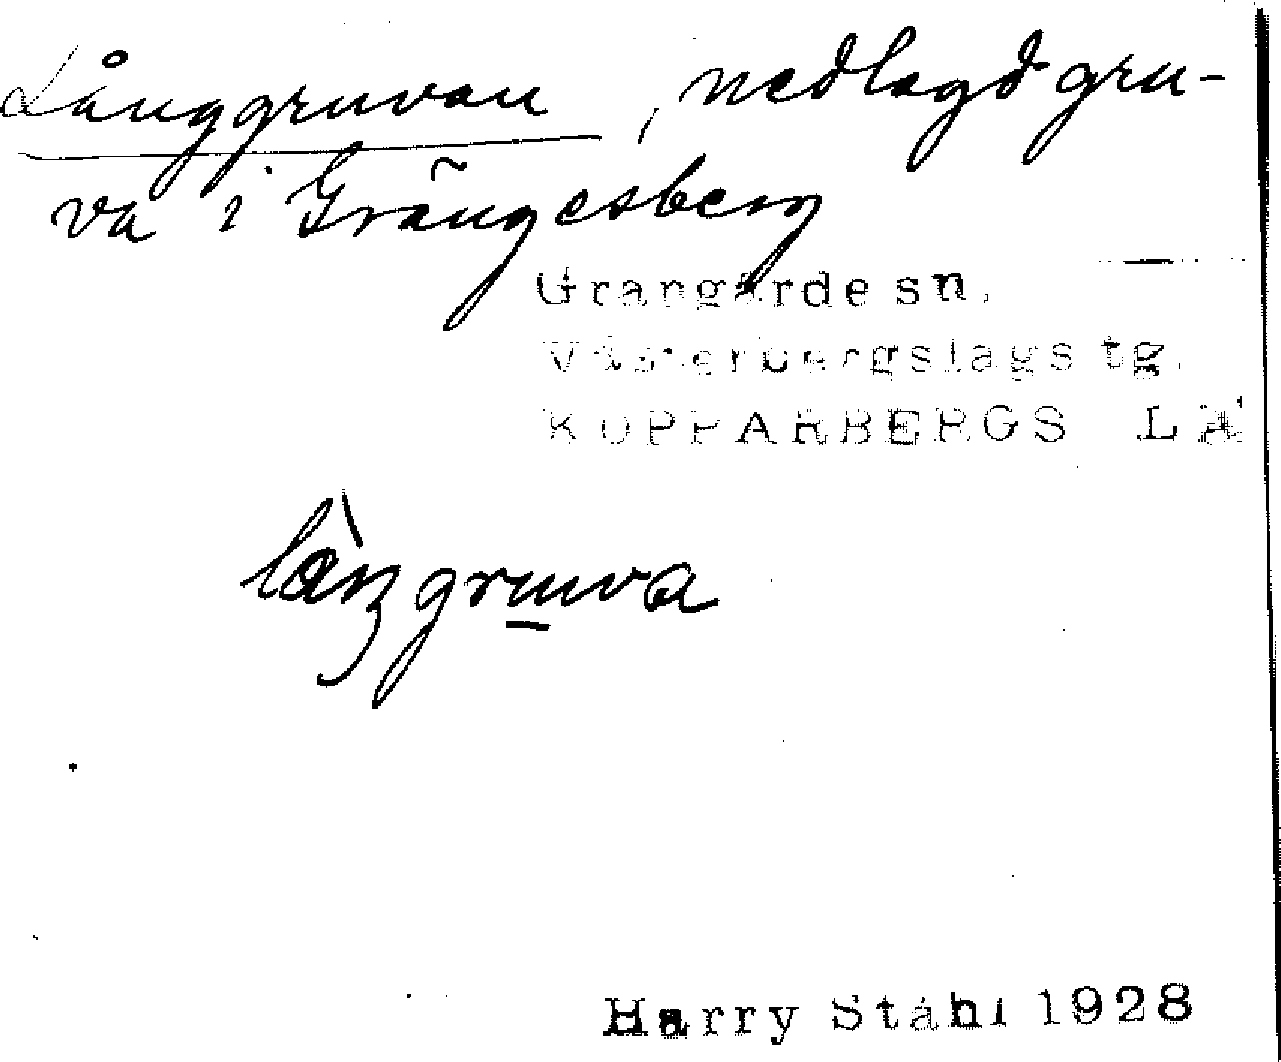 Långgruvan, nedlagd gru-
va i Grängesberg
Grangärde sn.
Västerbergslags tg.
KOPPARBERGS LÄ
làŋgruva
Harry Ståhl 1928